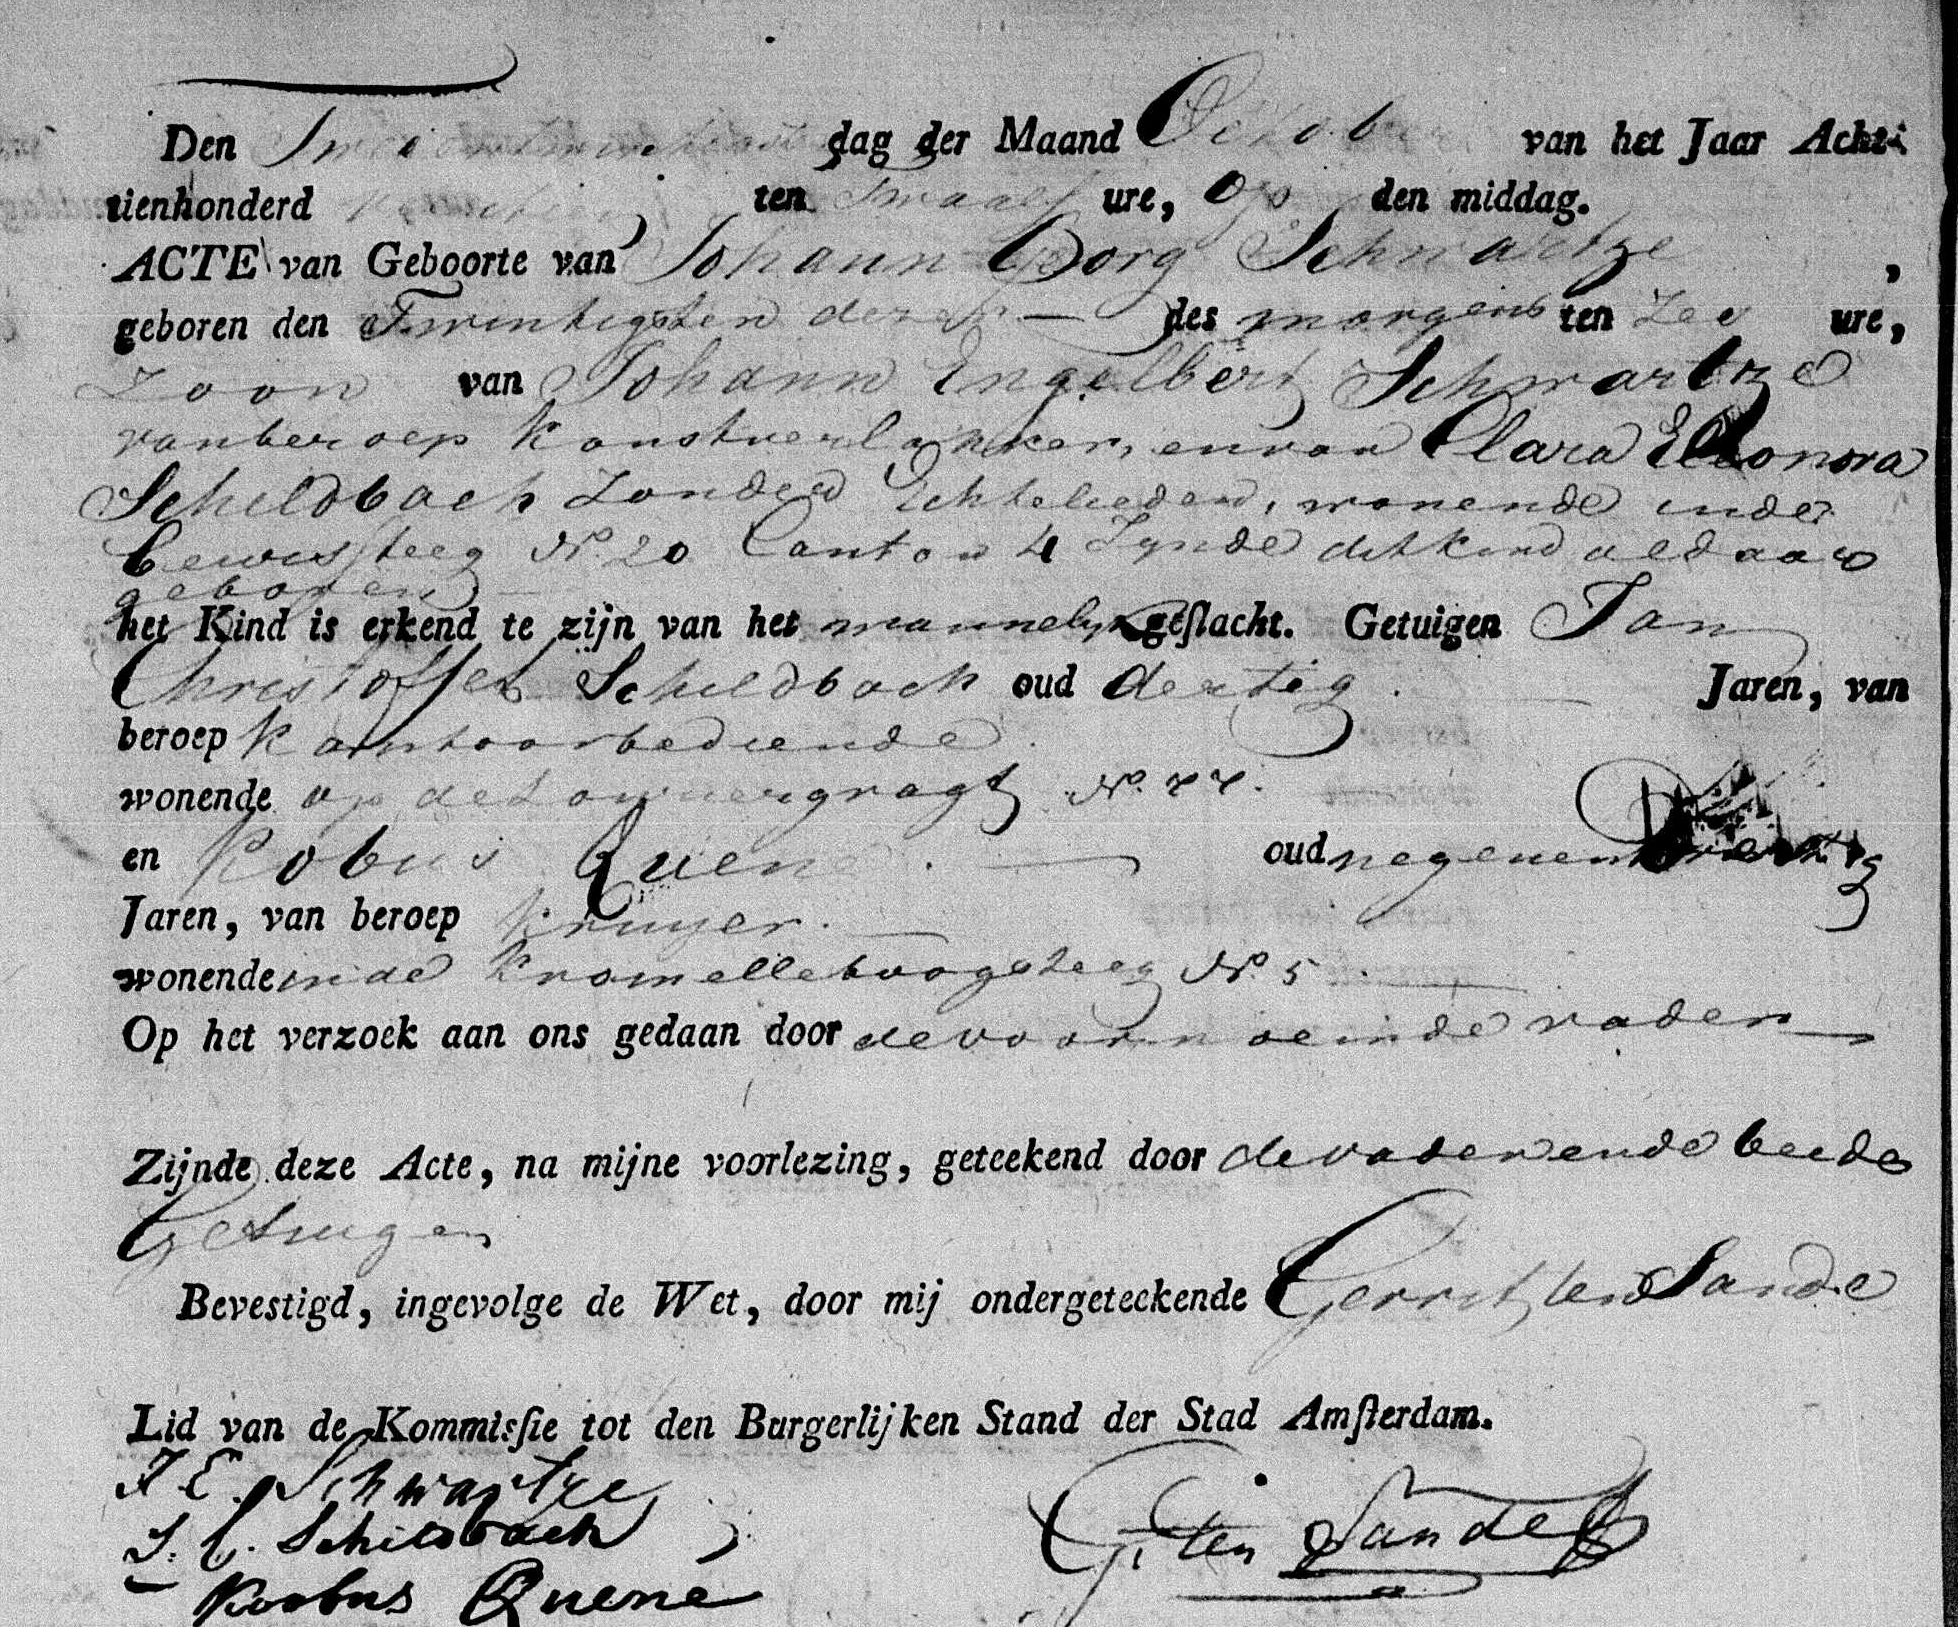 Den Twee en twintigste dag der Maand October van het Jaar Acht-
tienhonderd veertien, ten Twaalf ure, Op den middag.
ACTE van Geboorte van Johann Georg Schwartze,
geboren den Twintigsten dezer des morgens ten Zes ure,
Zoon van Johann Engelbert Schwartze
van beroep Konstverlakker, en van Clara Eleonora
Schildbach Zonder Echtelieden, wonende in de
steeg No. 20 Canton 4 Zynde dit kind aldaar
geboren
het Kind is erkend te zijn van het mannelyk geſlacht. Getuigen Jan
Christoffel Schildbach oud dertig Jaren, van
beroep Kantoorbediende
wonende op de gragt No. 77.
en Kobus Quene oud negenen
Jaren, van beroep Kruyer.
wonende in de Kromelleboogsteeg No. 5.
Op het verzoek aan ons gedaan door de voornoemde vader
Zijnde deze Acte, na mijne voorlezing, geteekend door de vader en de beide
Getuigen
Bevestigd, ingevolge de Wet, door mij ondergeteekende Gerrit ten Sande
Lid van de Kommisſie tot den Burgerlijken Stand der Stad Amſterdam.
J E. Schwartze
J. C. Schildbach
G. ten Sande
Koobus Quene